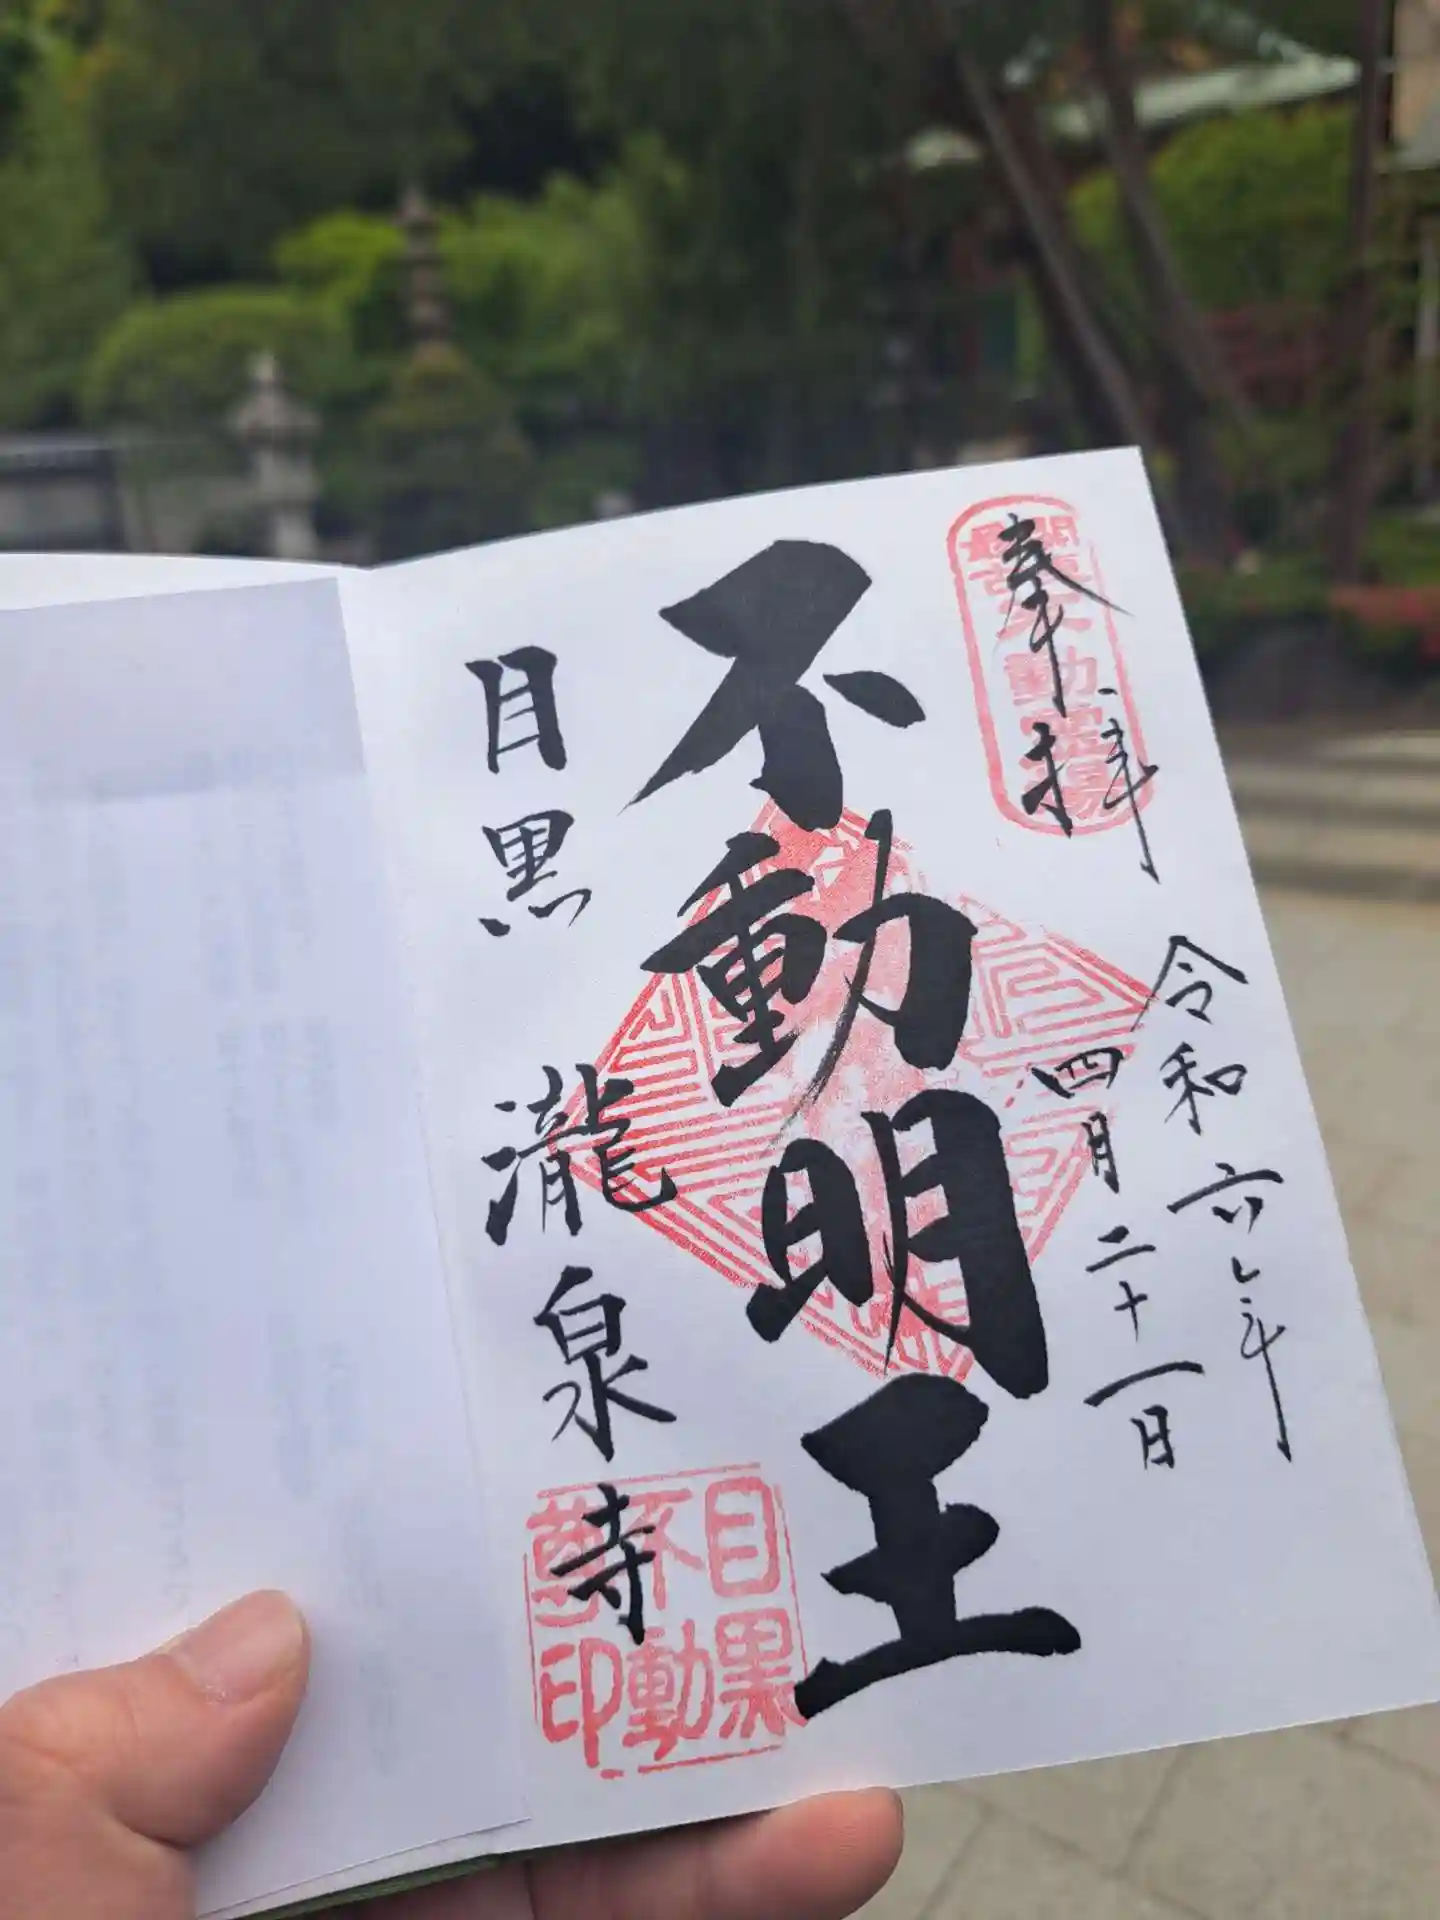 奉拝
令和六年
四月二十一日
不動明王
目黒 瀧泉寺
目黒
不動
尊印